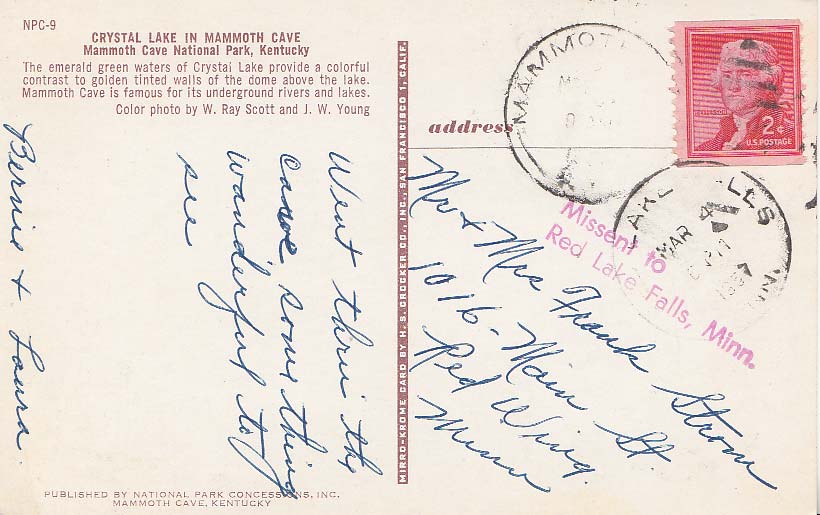 NPC-9
CRYSTAL LAKE IN MAMMOTH CAVE
Mammoth Cave National Park, Kentucky
The emerald green waters of Crystal Lake provide a colorful
contrast to golden tinted walls of the dome above the lake.
Mammoth Cave is famous for its underground rivers and lakes.
Color photo by W. Ray Scott and J. W. Young
Went thru the
cave some thing
wanderful to
see
Bernie + Laura.
PUBLISHED BY NATIONAL PARK CONCESSIONS, INC.
MAMMOTH CAVE, KENTUCKY
MIRRO-KROME CARD BY H. S. CROCKER CO., INC., SAN FRANCISCO 1, CALIF.
address
MAMMOTH
2¢
U.S. POSTAGE
LAKE FALLS
MAR 4
PM
Missent to
Red Lake Falls, Minn.
Mr + Mrs Frank Strom
1016 - Main St.
Red Wing.
Minn